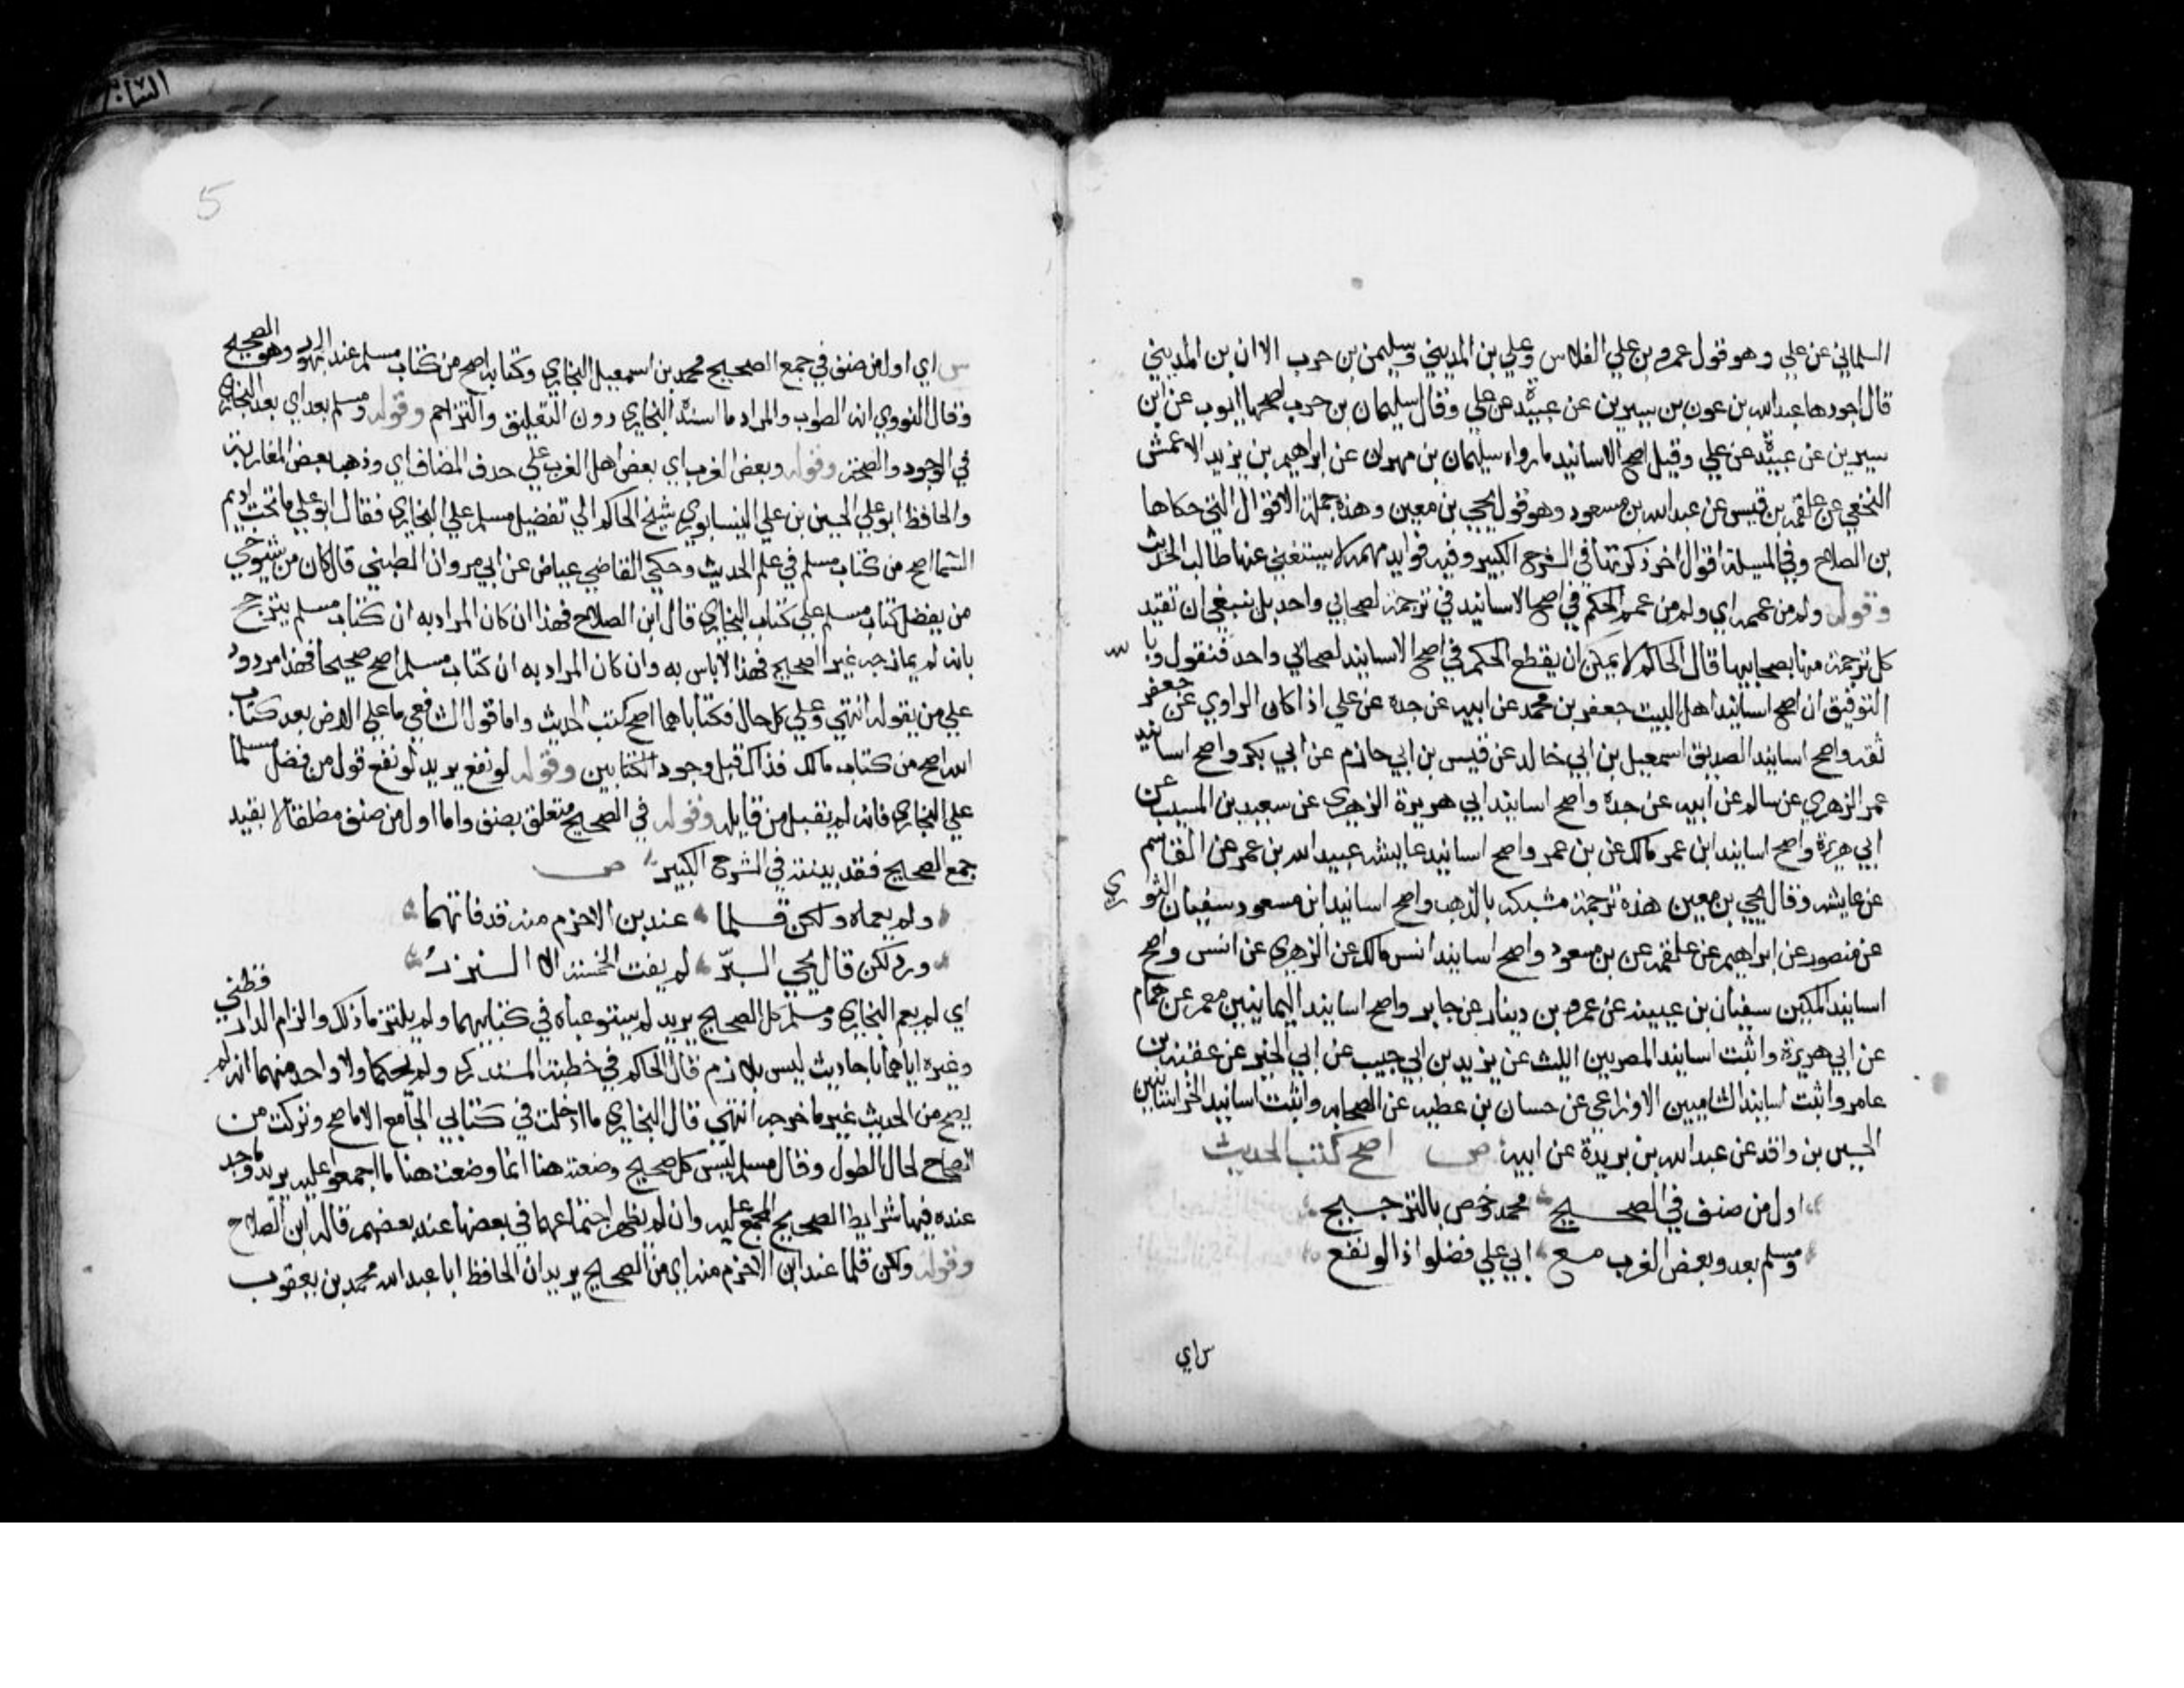 السلماني عن علي وهو قول عمرو بن علي الفلاس وعلي بن المديني وسليمن بن حرب الا ان بن المديني
قال اجودها عبدالله بن عون بن سيرين عن عبيدة عن علي وقال سليمان بن حرب اصحها ايوب عن ابن
سيرين عن عبيدة عن علي وقيل اصح الاسانيد ما رواه سليمان بن مهران عن ابراهيم بن يزيد الاعمش
النخعي عن علقمة بن قيس عن عبدالله بن مسعود وهو قول يحيى بن معين وهذه جملة الاقوال التي حكاها
بن الصلاح وفي المسيلة اقوال اخر ذكرتها في الشرح الكبير وفيه فوايد مهمة لا يستغني عنها طالب الحديث
وقوله ولم من عممه اي ولم من عمم الحكم في اصح الاسانيد في ترجمة لصحابي واحد بل ينبغي ان تقيد
كل ترجمة منها بصحابيها قال الحاكم لا يمكن ان يقطع الحكم في اصح الاسانيد لصحابي واحد فنقول وبالله
التوفيق ان اصح اسانيد اهل البيت جعفر بن محمد عن ابيه عن جده عن علي اذا كان الراوي عن جعفر
ثقة واصح اسانيد الصديق اسمعيل بن ابي خالد عن قيس بن ابي حازم عن ابي بكر واصح اسانيد
عمر الزهري عن سالم عن ابيه عن جده واصح اسانيد ابي هريرة الزهري عن سعيد بن المسيب عن
ابي هريرة واصح اسانيد ابن عمر مالك عن بن عمر واصح اسانيد عايشه عبيدالله بن عمر عن القاسم
عن عايشه وقال يحيي بن معين هذه ترجمة مشبكه بالذهب واصح اسانيد ابن مسعود سفيان الثوري
عن منصور عن ابراهيم عن علقمه عن بن مسعود واصح اسانيد انس مالك عن الزهري عن انس واصح
اسانيد المكيين سفيان بن عيينه عن عمرو بن دينار عن جابر واصح اسانيد اليمانيين معمر عن همام
عن ابي هريرة واثبت اسانيد المصريين الليث عن يزيد بن ابي حبيب عن ابي الخير عن عقبة بن
عامر واثبت اسانيد الشاميين الاوزاعي عن حسان بن عطيه عن الصحابه واثبت اسانيد الخراسانيين
الحسين بن واقد عن عبدالله بن بريدة عن ابيه ص اصح كتب الحديث
اول من صنف في الصحيح محمد وخص بالترجيح
ومسلم بعد وبعض الغرب مع ابي علي فضلوا ذا لو نفع
س اي
س اي اول من صنف في جمع الصحيح محمد بن اسمعيل البخاري وكتابه اصح من كتاب مسلم عند الجمهور وهو الصحيح
وقال النووي انه الصواب والمراد ما اسنده البخاري دون التعليق والتراجم وقوله ومسلم بعد اي بعد البخاري
في الوجود والصحة وقوله وبعض الغرب اي بعض اهل الغرب علي حدف المضاف اي وذهب بعض المغاربة
والحافظ ابو علي الحسين بن علي النيسابوري شيخ الحاكم الي تفضيل مسلم علي البخاري فقال ابو علي ما تحت اديم
السما اصح من كتاب مسلم في علم الحديث وحكي القاضي عياض عن ابي مروان الطبني قال كان من شيوخي
من يفضل كتاب مسلم علي كتاب البخاري قال ابن الصلاح فهذا ان كان المراد به ان كتاب مسلم يترجح
بانه لم يمازجه غير الصحيح فهذا لا باس به وان كان المراد به ان كتاب مسلم اصح صحيحا فهذا مردود
علي من يقوله انتهي وعلي كل حال فكتاباهما اصح كتب الحديث واما قول الشافعي ما علي الارض بعد كتاب
الله اصح من كتاب مالك فذاك قبل وجود الكتابين وقوله لو نفع يريد لو نفع قول من فضل مسلما
علي البخاري فانه لم يقبل من قايله وقوله في الصحيح متعلق بصنف واما اول من صنف مطلقا لا بقيد
جمع الصحيح فقد بينته في الشرح الكبير ص
ولم يعماه ولكن قلما عند بن الاخرم منه قد فاتهما
ورد لكن قال يحيي البرّ لم يفت الخمسة الا النزر
اي لم يعم البخاري ومسلم كل الصحيح يريد لم يستوعباه في كتابيهما ولم يلتزما ذلك والزام الدارقطني
وغيره اياهما باحاديث ليس بلازم قال الحاكم في خطبة المستدرك ولم يحكما ولا واحد منهما انه لم
يصح من الحديث غير ما خرجه انتهي قال البخاري ما ادخلت في كتابي الجامع الا ما صح وتركت من
الصحاح لحال الطول وقال مسلم ليس كل صحيح وضعته هنا انما وضعت هنا ما اجمعوا عليه يريد ما وجد
عنده فيها شرايط الصحيح المجمع عليه وان لم يظهر اجتماعها في بعضها عند بعضهم قاله ابن الصلاح
وقوله ولكن قلما عند ابن الاخرم منه اي من الصحيح يريد ان الحافظ ابا عبدالله محمد بن يعقوب
5